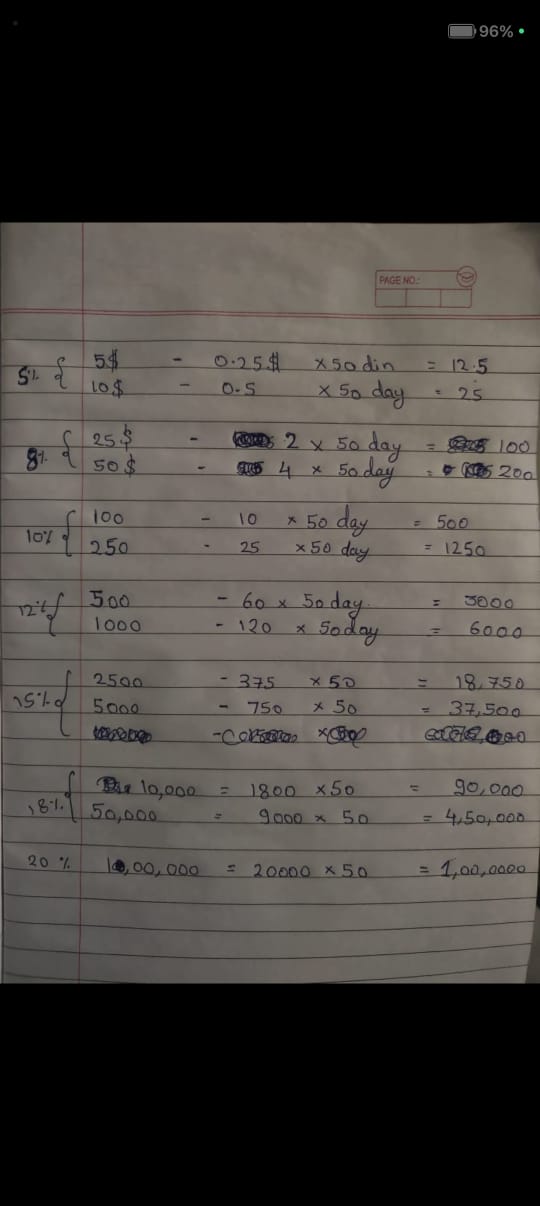 96%
PAGE NO.:
5% { 5$ - 0.25$ x50 din = 12.5
10$ - 0.5 x50 day = 25
8% { 25$ - 2 x 50 day = 100
50$ - 4 x 50 day = 200
10% { 100 - 10 x 50 day = 500
250 - 25 x50 day = 1250
12% { 500 - 60 x 50 day. = 3000
1000 - 120 x 50day = 6000
15% { 2500 - 375 x 50 = 18,750
5000 - 750 x 50 = 37,500
18% { 10,000 = 1800 x50 = 90,000
50,000 = 9000 x 50 = 4,50,000
20 % 1,00,000 = 20000 x50 = 1,00,0000